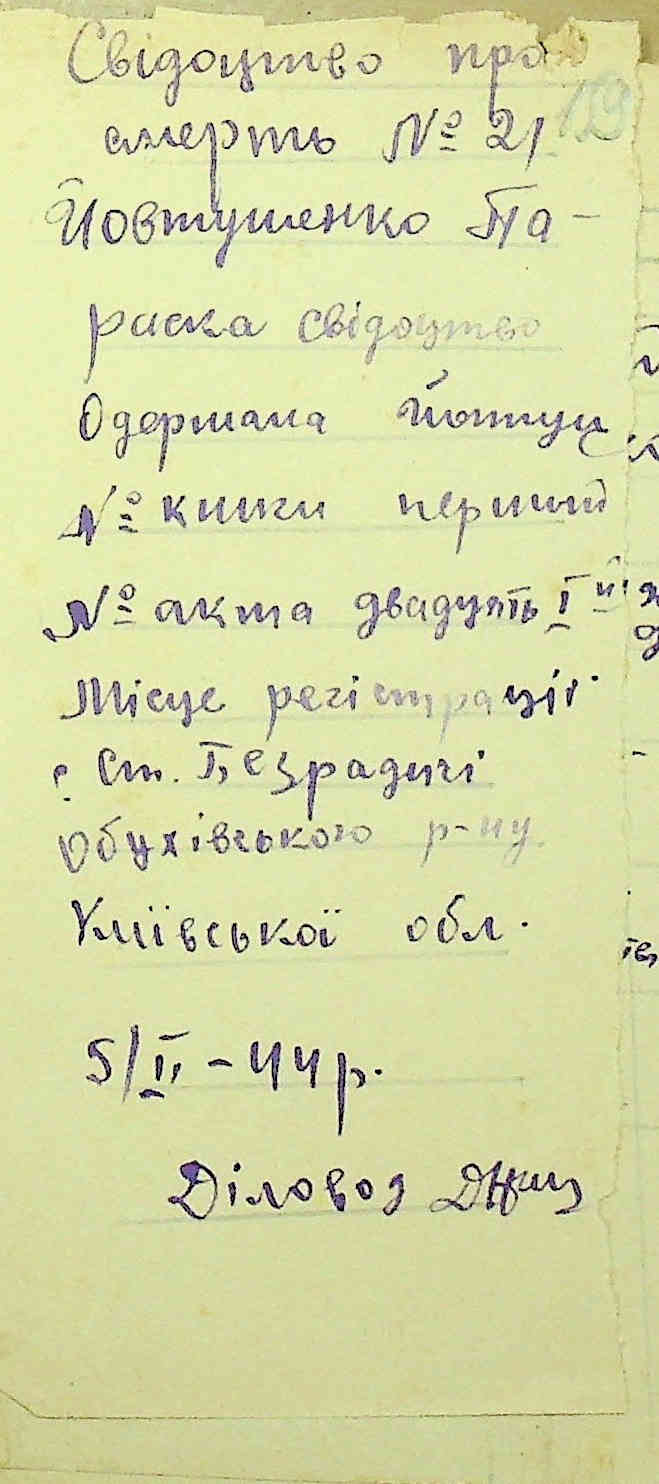 Свідоцтво про
смерть № 21
19
Йовтушенко Па-
раска свідоцтво
Одержала
№ книги первий
№ акта двадцять І й
Місце регістрації
с. Ст. Безрадичі
Обухівського р-ну
Київської обл.
5/ІІ - 44 р.
Діловод